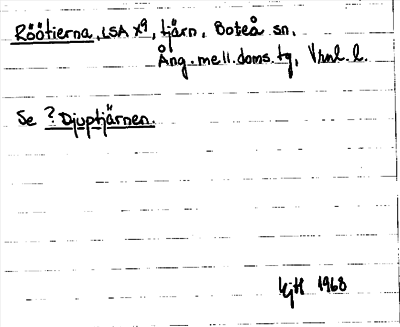 Röötierna, LSA X9, tjärn, Boteå sn.
Ång. mell. doms. tg, Vrnl. l.
Se ? Djuptjärnen.
1968